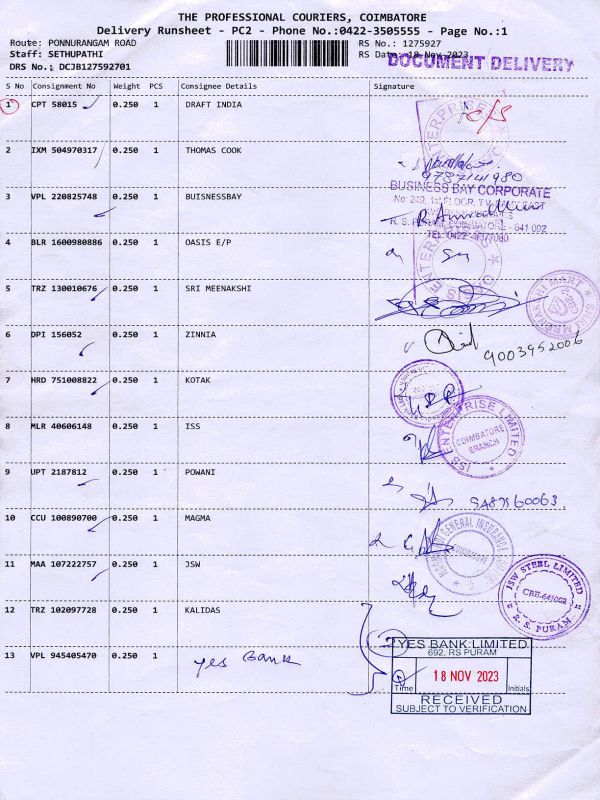 THE PROFESSIONAL COURIERS, COIMBATORE
Delivery Runsheet - PC2 - Phone No.:0422-3505555 - Page No.:1
Route: PONNURANGAM ROAD RS No.: 1275927
Staff: SETHUPATHI RS Date: 18 Nov 2023
DOCUMENT DELIVERY
DRS No.: DCJB127592701
S No Consignment No Weight PCS Consignee Details Signature
1 CPT 58015 0.250 1 DRAFT INDIA
2 IXM 504970317 0.250 1 THOMAS COOK
9787141980
3 VPL 220825748 0.250 1 BUISNESSBAY
BUSINESS BAY CORPORATE
4 BLR 1600980886 0.250 1 OASIS E/P
5 TRZ 130010676 0.250 1 SRI MEENAKSHI
6 DPI 156052 0.250 1 ZINNIA
9003952006
7 HRD 751008822 0.250 1 KOTAK
8 MLR 40606148 0.250 1 ISS
ISS ENTERPRISE LIMITED
COIMBATORE
BRANCH
9 UPT 2187812 0.250 1 POWANI
10 CCU 100890700 0.250 1 MAGMA
11 MAA 107222757 0.250 1 JSW
JSW STEEL LIMITED
CBE-641002
R. S. PURAM
12 TRZ 102097728 0.250 1 KALIDAS
13 VPL 945405470 0.250 1 yes Bank
YES BANK LIMITED
692, RS PURAM
18 NOV 2023
Time Initials
RECEIVED
SUBJECT TO VERIFICATION